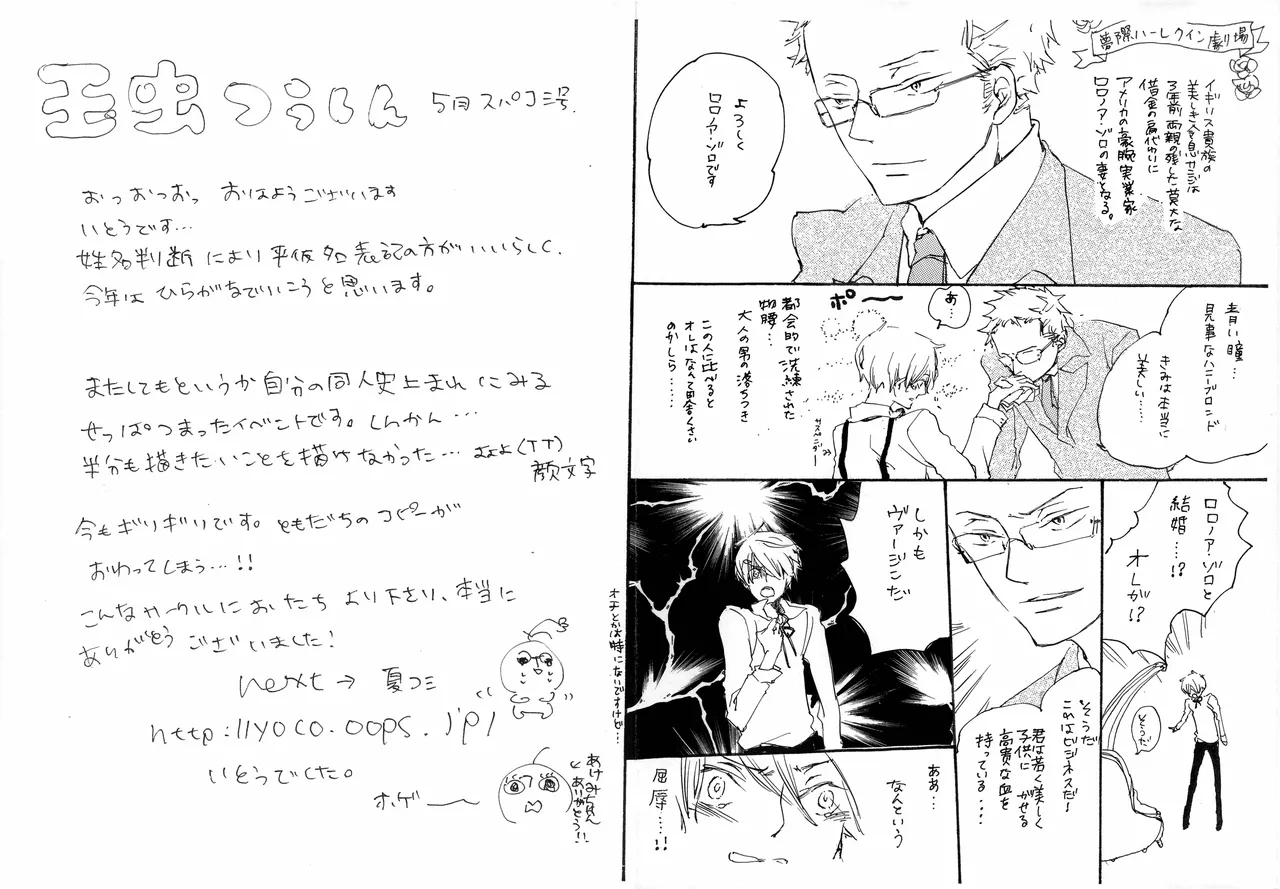 王虫つうしん 5月スパコミ号.
おっおっおっ おはようございます
いとうです…
姓名判断により平仮名表記の方がいいらしく、
今年はひらがなでいこうと思います。
またしてもというか自分の同人史上まれにみる
せっぱつまったイベントです。しんかん…
半分も描きたいことを描けなかった… むよよ(TT)
顔文字
今もギリギリです。ともだちのコピーが
おわってしまう…!!
こんなサークルにおたちより下さり、本当に
ありがとうございました!
next→ 夏コミ
http://yoco.oops.jp/
いとうでした。
ホゲー
あけみちゃん
ありがとう!!
夢際ハーレクイン劇場
イギリス貴族の
美しき令息サンジは
3年前両親の残した莫大な
借金の肩代わりに
アメリカの豪腕実業家
ロロノア・ゾロの妻となる。
よろしく
ロロノア・ゾロです
青い瞳…
見事なハニーブロンド
きみは本当に
美しい……
あ…
ポーー
都会的で洗練された
物腰…
大人の男の落ちつき
この人に比べると
オレはなんて田舎くさい
のかしら……
サスペンダー
ロロノア・ゾロと
結婚……!?
オレが!?
そうだ
そうだ
これはビジネスだ
君は若く美しく
子供に
がせる
高貴な血を
持っている……
しかも
ヴァージンだ
ああ…
なんという
屈辱……!!
オチとかは特にないですけど…